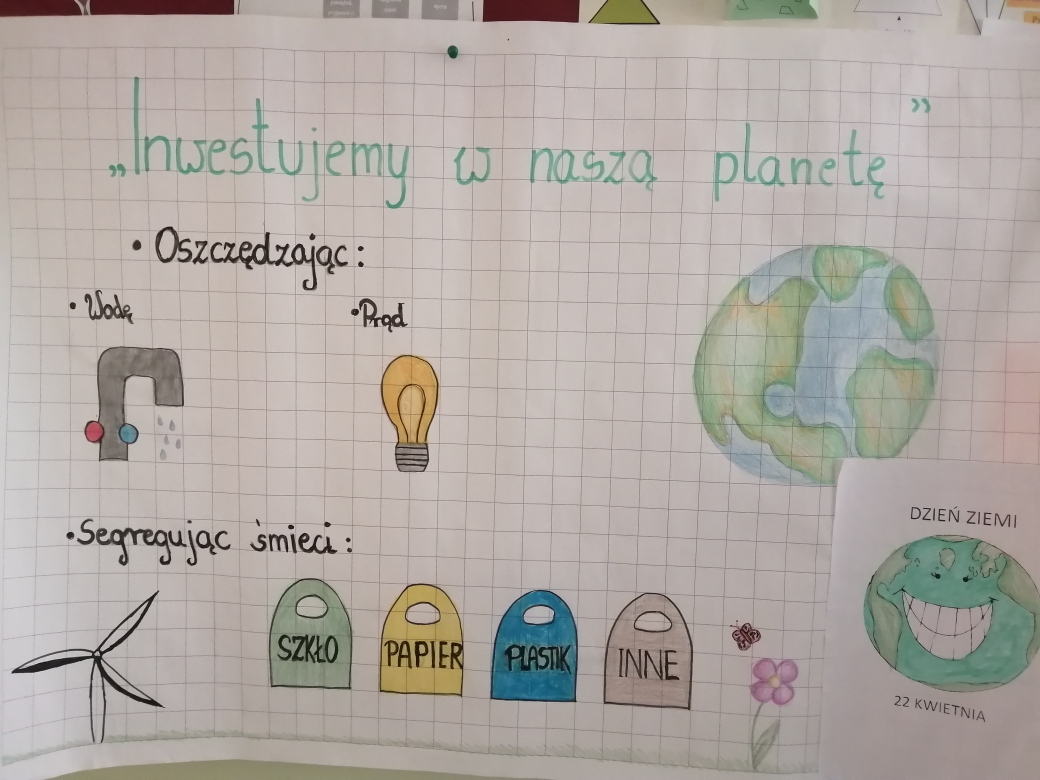 „Inwestujemy w naszą planetę”
• Oszczędzając:
• Wodę
• Prąd
• Segregując śmieci:
SZKŁO
PAPIER
PLASTIK
INNE
DZIEŃ ZIEMI
22 KWIETNIA